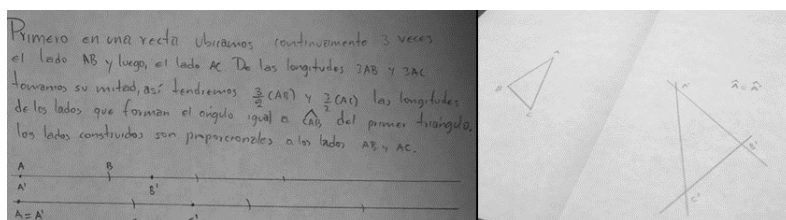 Primero en una recta ubicamos continuamente 3 veces
el lado AB y luego, el lado AC De las longitudes 3AB y 3AC
tomamos su mitad, así tendremos 3/2 (AB) y 3/2 (AC) las longitudes
de los lados que forman el ángulo igual a CAB del primer triángulo,
los lados construidos son proporcionales a los lados AB y AC.
A B
A' B'
A = A'
A
B
C
A'
Â = Â'
B'
C'